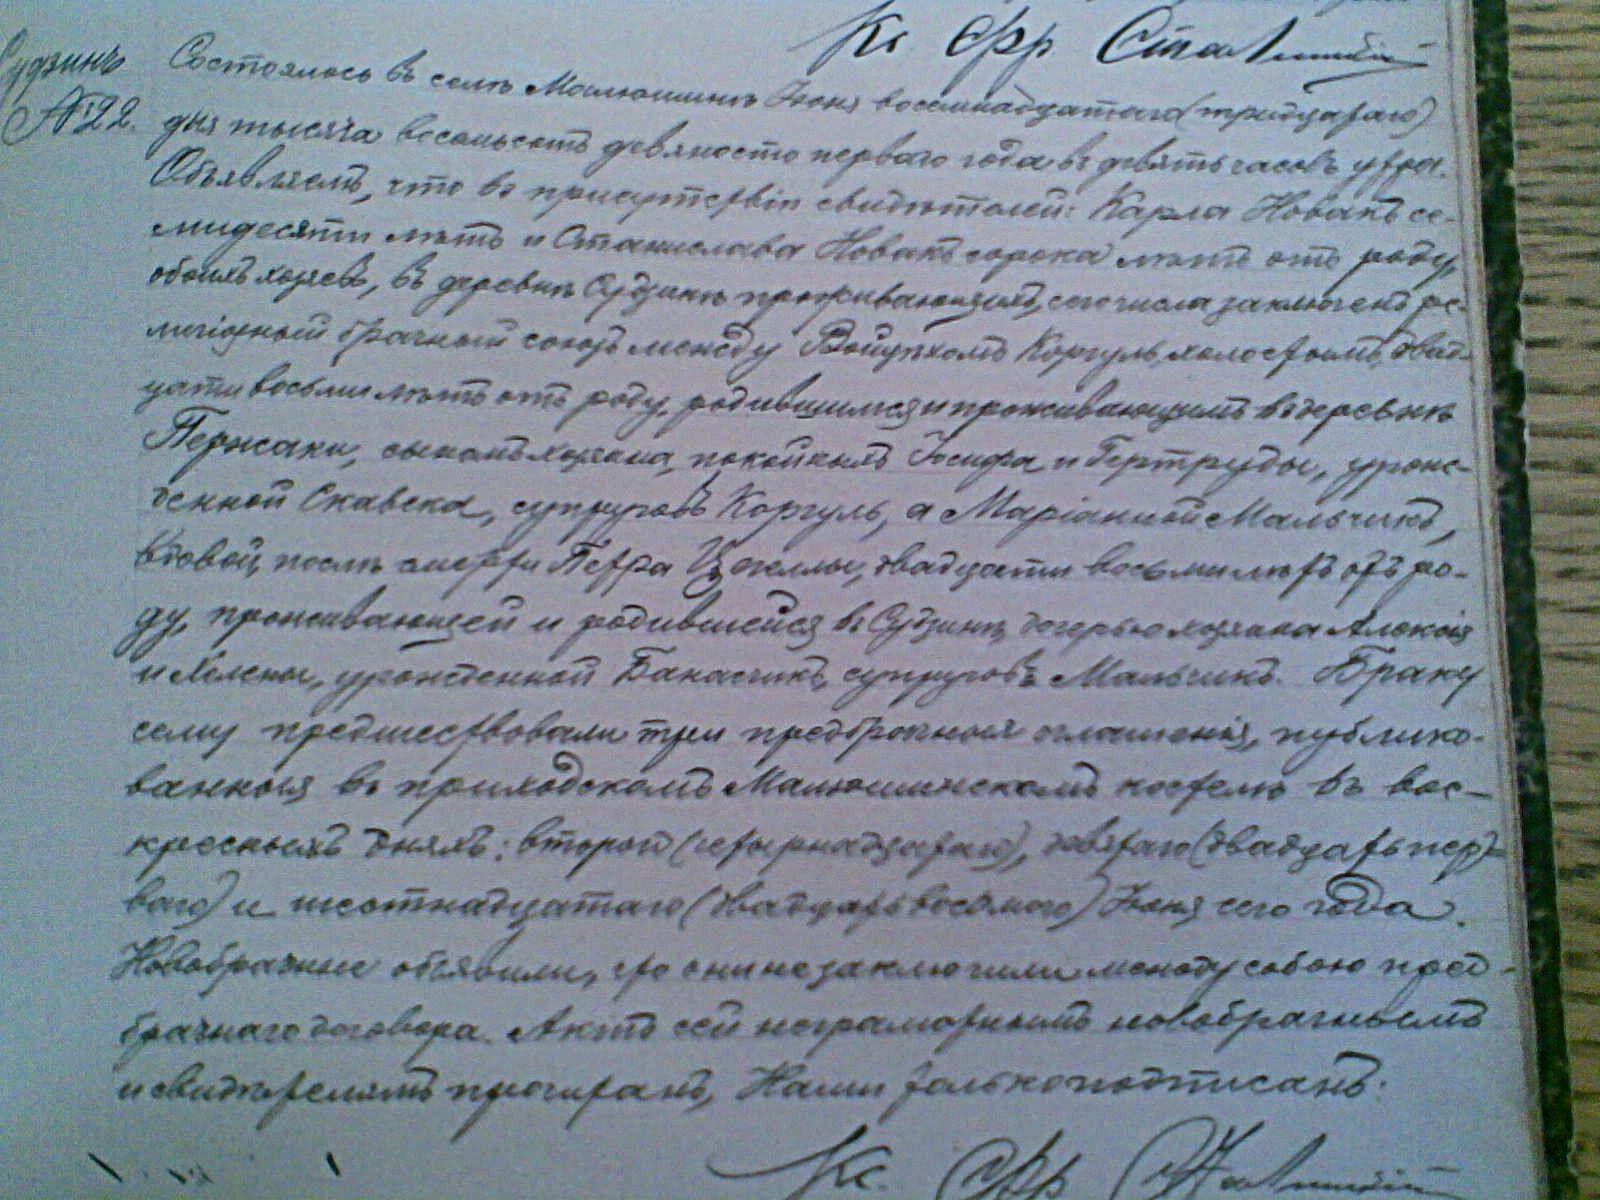 Кс. Фр.
Судзинъ
№ 22.
Состоялось въ селѣ Малюшинѣ Іюня восемнадцатаго (тридцатаго)
дня тысяча восемьсотъ девяносто перваго года въ девять часовъ утра.
Объявляемъ, что въ присутствіи свидѣтелей: Карла Новакъ се-
мидесяти лѣтъ и Станислава Новакъ сорока лѣтъ отъ роду,
обоихъ хозяевъ, въ деревнѣ Судзинѣ проживающихъ, сего числа заключенъ ре-
лигіозный брачный союзъ между Войцѣхомъ Коргуль, холостымъ, двад-
цати восьми лѣтъ отъ роду, родившимся и проживающимъ въ деревнѣ
сыномъ хозяина, покойныхъ Іосифа и Гертруды, урож-
денной Скавска, супруговъ Коргуль, а Маріанной Мальчикъ,
вдовой послѣ смерти Петра двадцати восьми лѣтъ отъ ро-
ду, проживающей и родившейся въ Судзинѣ, дочерью хозяина Алексія
и Хелены, урожденной Банасикъ, супруговъ Мальчикъ. Браку
сему предшествовали три предбрачныя оглашенія, публико-
ванныя въ приходскомъ Малюшинскомъ костелѣ въ вос-
кресныхъ дняхъ: второй (четырнадцатаго), девятаго (двадцать пер-
ваго) и шестнадцатаго (двадцать восьмого) Іюня сего года.
Новобрачные объявили, что они не заключили между собою пред-
брачнаго договора. Актъ сей неграмотнымъ новобрачнымъ
и свидѣтелямъ прочитанъ, Нами только подписанъ:
Кс. Фр.